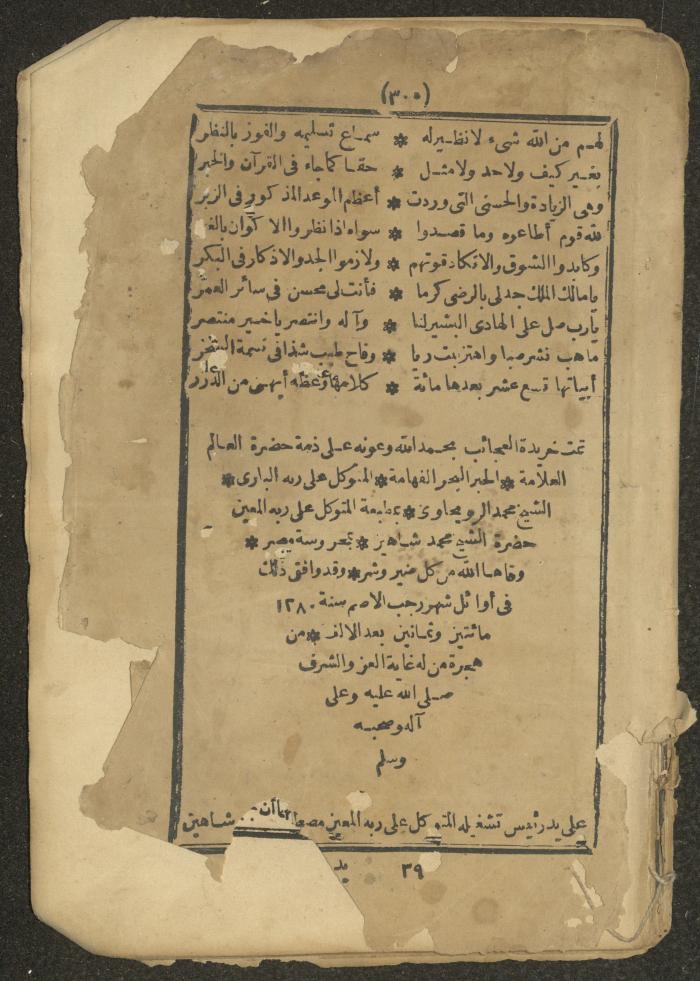 (٣٠٥)
لهم من الله شىء لا نظير له ✻ سماع تسليمه والفوز بالنظر
بغير كيف ولا حد ولا مثل ✻ حقا كما جاء فى القرآن والخبر
وهى الزيادة والحسنى التى وردت ✻ أعظم الموعد المذكور فى الزبر
لله قوم أطاعوه وما قصدوا ✻ سواه اذا نظروا الاكوان بالعبر
وكابدوا الشوق والانكاد قوتهم ✻ ولازموا الجد والاذكار فى البكر
يا مالك الملك جد لى بالرضى كرما ✻ فأنت لى محسن فى سائر العمر
يارب صل على الهادى البشير لنا ✻ وآله وانتصر يا خير منتصر
ما هب نشر صبا واهتز نبت ربا ✻ وفاح طيب شذا فى نسمة السحر
أبياتها تسع عشر بعدها مائة ✻ كلامها وعظه أبهى من الدرر
تمت خريدة العجائب بحمد الله وعونه على ذمة حضرة العالم
العلامة ✻ الحبر البحر الفهامة ✻ المتوكل على ربه البارى ✻
الشيخ محمد الرويحاوى ✻ بمطبعة المتوكل على ربه المعين
حضرة الشيخ محمد شاهين ✻ بمحروسة مصر ✻
وقاها الله من كل ضير وشر ✻ وقد وافق ذلك
فى أوائل شهر رجب الاصم سنة ١٢٨٠
مائتين وثمانين بعد الالف ✻ من
هجرة من له غاية العز والشرف
صلى الله عليه وعلى
آله وصحبه
وسلم
على يد رئيس تشغيله المتوكل على ربه المعين شاهين
٣٩ يد